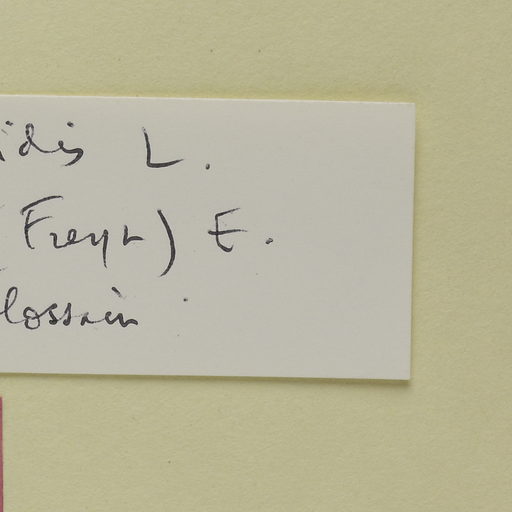 idis L.
(Freyn) E.
Hossain